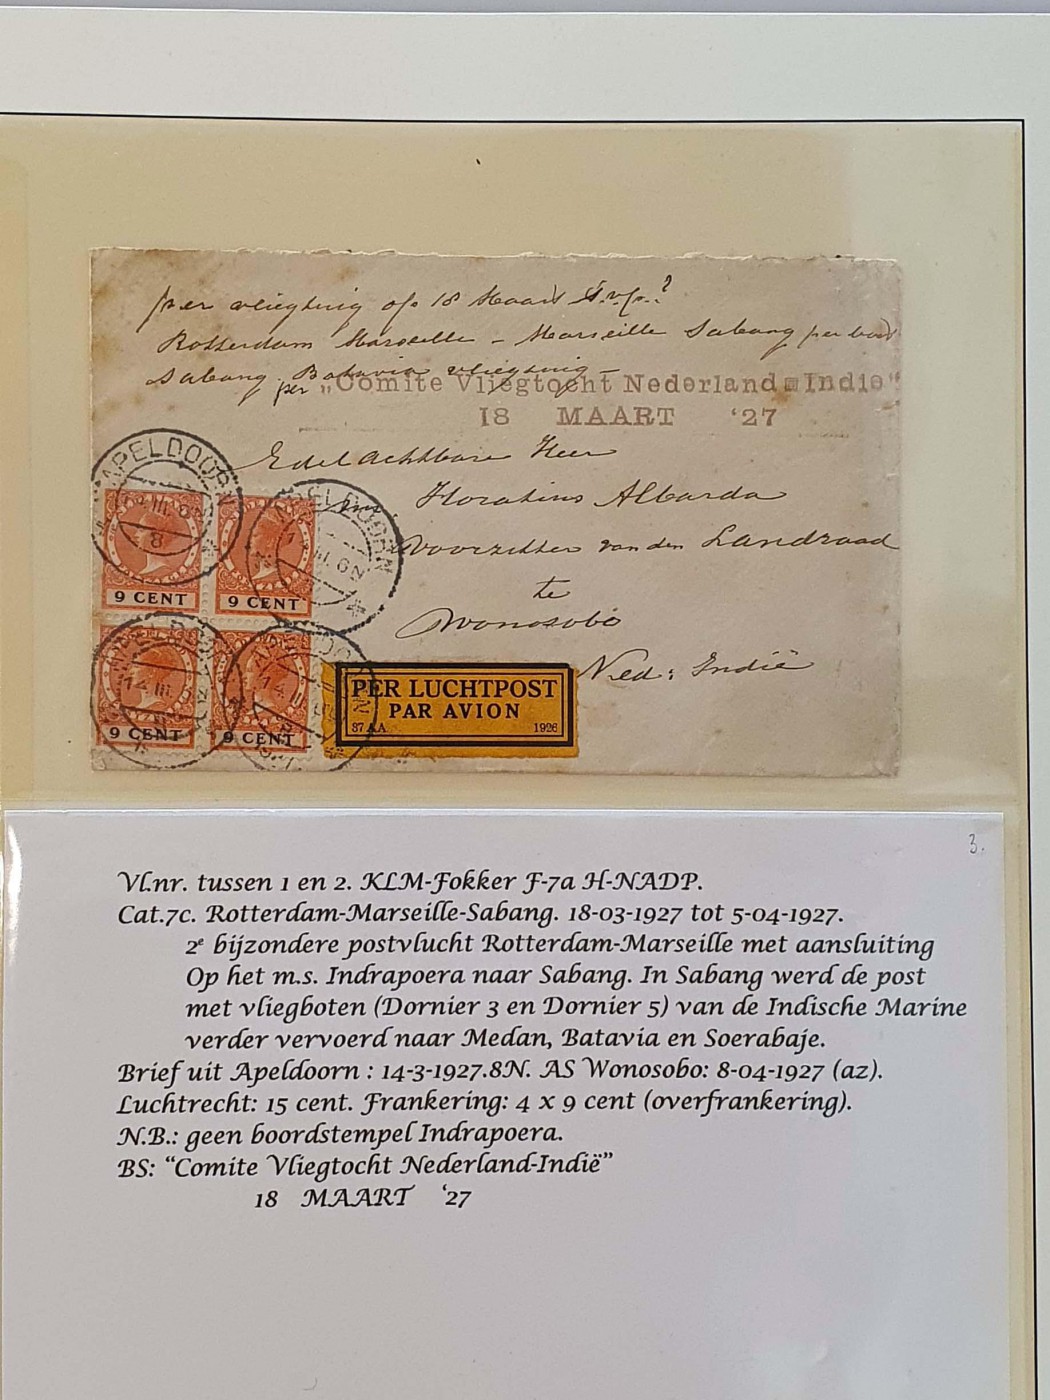 per vliegtuig op 18 Maart
Rotterdam Marseille – Marseille Sabang per boot
Sabang Batavia vliegtuig –
per „Comite Vliegtocht Nederland-Indië”
18 MAART ‘27
Edelachtbare Heer
Horatius Albarda
voorzitter van den Landraad
te
Wonosobo
Ned: Indië
APELDOORN
APELDOORN
9 CENT 9 CENT
9 CENT 9 CENT
PER LUCHTPOST
PAR AVION
37 AA 1926
3.
Vl.nr. tussen 1 en 2. KLM-Fokker F-7a H-NADP.
Cat.7c. Rotterdam-Marseille-Sabang. 18-03-1927 tot 5-04-1927.
2e bijzondere postvlucht Rotterdam-Marseille met aansluiting
Op het m.s. Indrapoera naar Sabang. In Sabang werd de post
met vliegboten (Dornier 3 en Dornier 5) van de Indische Marine
verder vervoerd naar Medan, Batavia en Soerabaje.
Brief uit Apeldoorn : 14-3-1927.8N. AS Wonosobo: 8-04-1927 (az).
Luchtrecht: 15 cent. Frankering: 4 x 9 cent (overfrankering).
N.B.: geen boordstempel Indrapoera.
BS: “Comite Vliegtocht Nederland-Indië”
18 MAART ‘27